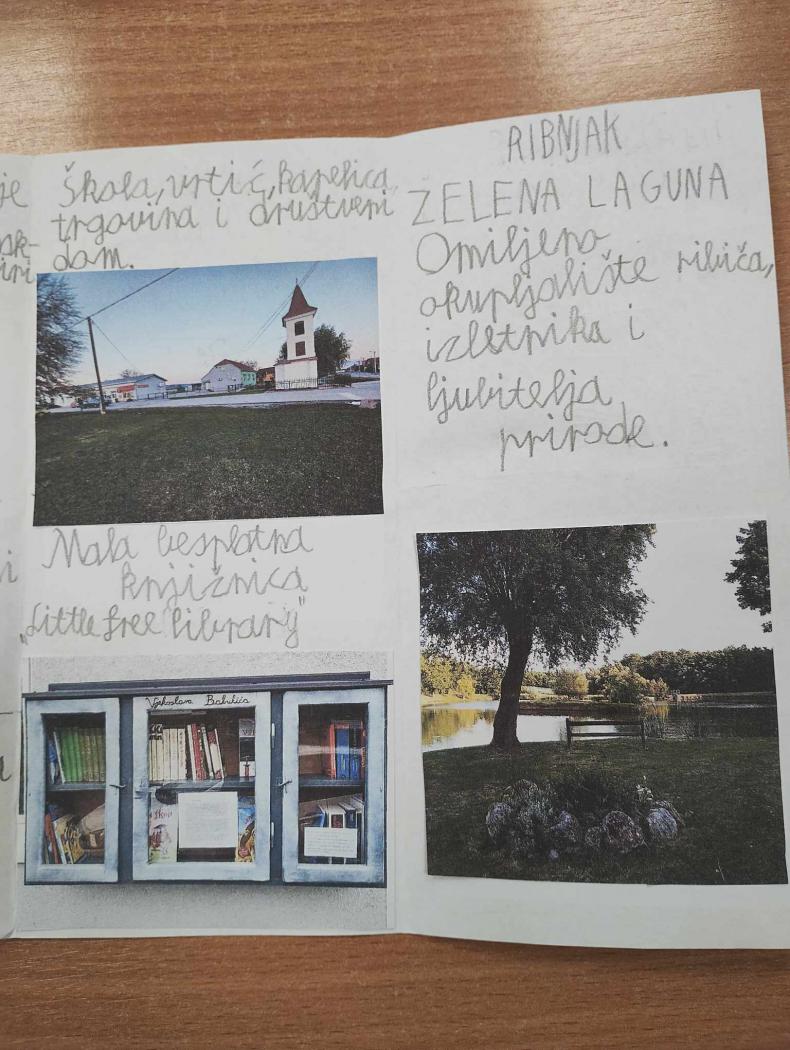 je
Škola, vrtić, kapelica,
trgovina i društveni
dom.
Mala besplatna
knjižnica
„Little free library"
Vjekoslava Babukića
RIBNJAK
ZELENA LAGUNA
Omiljeno
okupljalište ribiča,
izletnika i
ljubitelja
prirode.